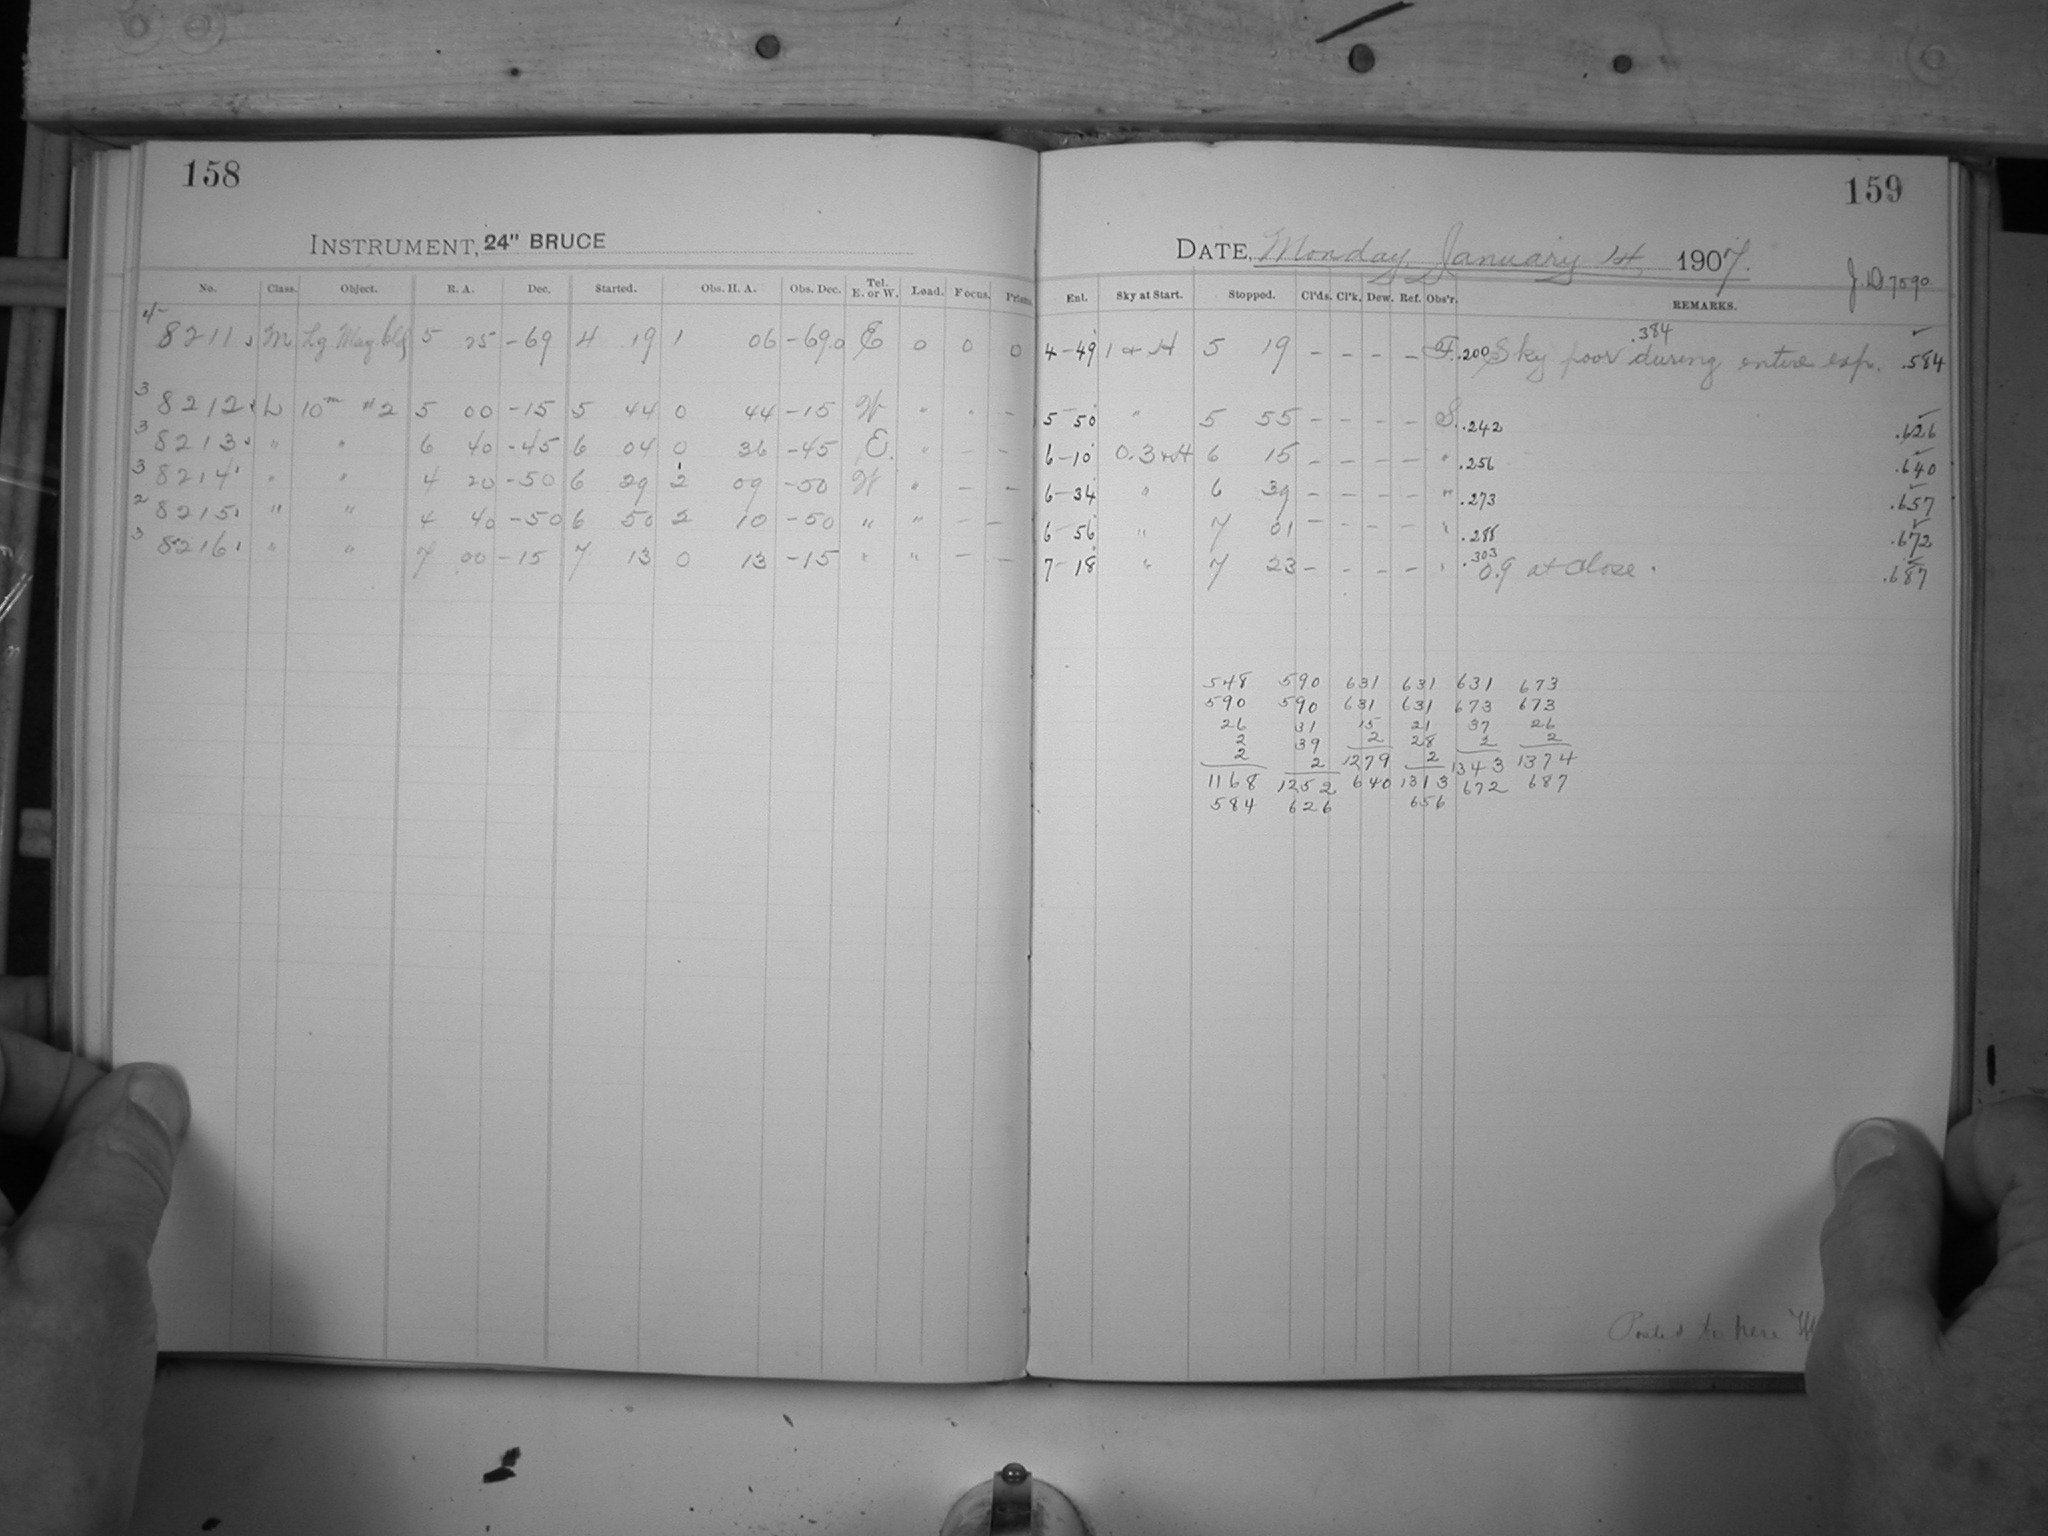 158
159
INSTRUMENT, 24" BRUCE
DATE, Monday, January 14, 1907.
J.D. 7590
No. Class. Object. R. A. Dec. Started. Obs. H. A. Obs. Dec. Tel. E. or W. Load. Focus. Prisms.
Enl. Sky at Start. Stopped. Cl'ds. Cl'k. Dew. Ref. Obs'r. REMARKS.
8211 M Lg. Mag. Cld 5 25 -69 4 19 1 06 -69.0 E 0 0 0
4-49 1 + H 5 19 - - - - F. .200 Sky poor during entire exp. .384 .584
3 8212 L 10m #2 5 00 -15 5 44 0 44 -15 W " " -
5 50 " 5 55 - - - - S. .242 .626
3 8213 " " 6 40 -45 6 04 0 36 -45 E. " - -
6-10 0.3+H 6 15 - - - - " .256 .640
3 8214 " " 4 20 -50 6 29 2 09 -50 W " - -
6-34 " 6 39 - - - - " .273 .657
2 8215 " " 4 40 -50 6 50 2 10 -50 " " - -
6 56 " 7 01 - - - - " .288 .672
3 8216 " " 7 00 -15 7 13 0 13 -15 " " - -
7-18 " 7 23 - - - - " .303 0.9 at close. .687
548 590 631 631 631 673
590 590 631 631 673 673
26 31 15 21 37 26
2 39 2 28 2 2
2 2 1279 2 1343 1374
1168 1252 640 1313 672 687
584 626 656
Posted to here